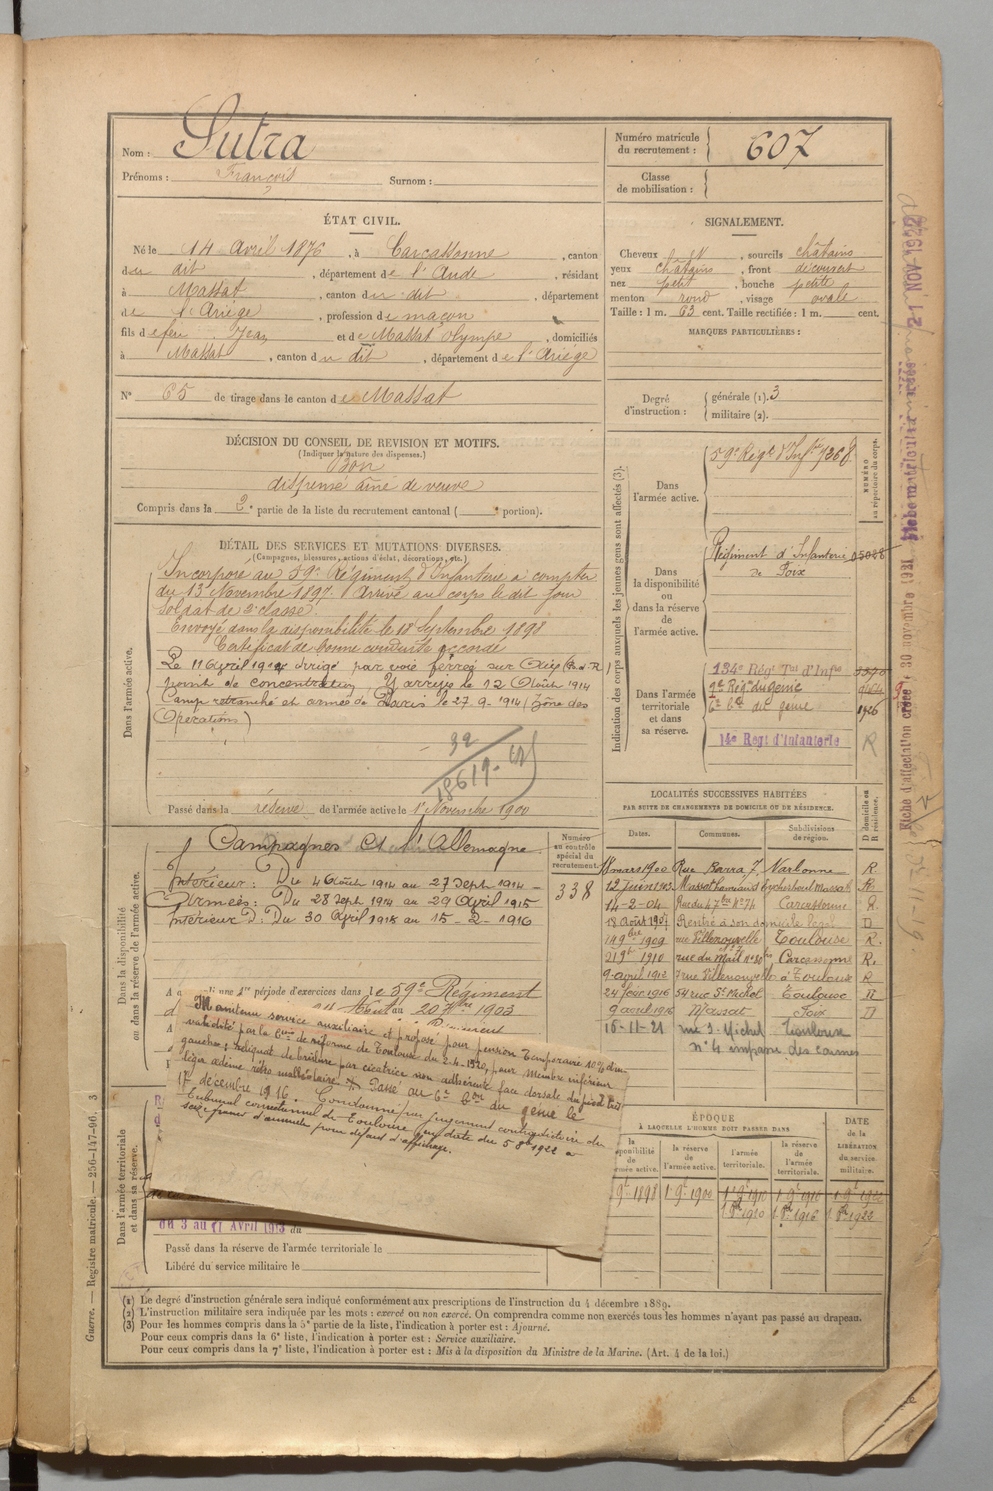 Nom : Sutra
Prénoms : François Surnom :
Numéro matricule du recrutement : 607
Classe de mobilisation :
ÉTAT CIVIL.
Né le 14 Avril 1876, à Carcassonne, canton
du dit, département de l'Aude, résidant
à Massat, canton du dit, département
de l'Ariège, profession de maçon
fils de feu Jean et de Massat Olympe, domiciliés
à Massat, canton du dit, département de l'Ariège
N° 65 de tirage dans le canton de Massat
SIGNALEMENT.
Cheveux et sourcils châtains
yeux châtains, front découvert
nez petit, bouche petite
menton rond, visage ovale
Taille : 1 m. 63 cent. Taille rectifiée : 1 m. cent.
MARQUES PARTICULIÈRES :
Degré d'instruction :
générale (1). 3
militaire (2).
DÉCISION DU CONSEIL DE REVISION ET MOTIFS.
(Indiquer la nature des dispenses.)
Bon
dispensé aîné de veuve
Compris dans la 2e partie de la liste du recrutement cantonal ( portion).
DÉTAIL DES SERVICES ET MUTATIONS DIVERSES.
(Campagnes, blessures, actions d'éclat, décorations, etc.)
Dans l'armée active.
Incorporé au 59e Régiment d'Infanterie à compter
du 13 Novembre 1897. Arrivé au corps le dit jour
Soldat de 2e classe
Envoyé dans la disponibilité le 18 Septembre 1898
Certificat de bonne conduite accordé
point de concentration Y arrive le 12 Août 1914
Camp retranché et armée de Paris le 27.9.1914 (Zône des
Opérations)
32
18619
Passé dans la réserve de l'armée active le 1er Novembre 1900
Indication des corps auxquels les jeunes gens sont affectés (3).
NUMÉRO au répertoire du corps.
Dans l'armée active.
59e Régt d'Infrie 7368
Dans la disponibilité ou dans la réserve de l'armée active.
Régiment d'Infanterie
de Foix
Dans l'armée territoriale et dans sa réserve.
134e Régt Tal d'Infie
du génie
6e Bon du génie
14e Regt d'Infanterie R
Dans la disponibilité ou dans la réserve de l'armée active.
Campagnes Ct l'Allemagne
Intérieur : Du 4 Août 1914 au 27 Sept 1914
Armées : Du 28 Sept 1914 au 29 Avril 1915
Intérieur D : Du 30 Avril 1915 au 15-2-1916
Numéro au contrôle spécial du recrutement.
338
une 1re période d'exercices dans le 59e Régiment
Maintenu service auxiliaire et proposé pour pension temporaire 10% d'in-
validité par la Con de réforme de Toulouse du 2-4-1920, pour Membre inférieur
gauche ; reliquat de brûlure par cicatrice non adhérente face dorsale du pied très
léger œdème rétro malléolaire. Passé au 6e Bon du génie le
17 décembre 1916. Condamné par jugement contradictoire du
Tribunal correctionnel de Toulouse en date du 5 8bre 1922 à
seize francs d'amende pour défaut d'affichage.
LOCALITÉS SUCCESSIVES HABITÉES
PAR SUITE DE CHANGEMENTS DE DOMICILE OU DE RÉSIDENCE.
Dates. Communes. Subdivisions de région. D domicile ou R résidence.
18 mars 1900 Rue Barra 7, Narbonne R.
14-2-04 Carcassonne R.
18 Août 1907 Rentré à son domicile légal D
1909 rue Villenouvelle Toulouse R.
1910 rue du Mail Carcassonne R.
9 avril 1912 rue Villenouvelle à Toulouse R
24 févr 1916 54 rue St Michel Toulouse R
9 avril 1916 Massat Foix D
16-11-21 rue St Michel Toulouse
n° 4 impasse des carmes
ÉPOQUE À LAQUELLE L'HOMME DOIT PASSER DANS
la réserve de l'armée active.
l'armée territoriale.
la réserve de l'armée territoriale.
DATE de la LIBÉRATION du service militaire.
Dans l'armée territoriale et dans sa réserve.
du 3 au 11 Avril 1913
Passé dans la réserve de l'armée territoriale le
Libéré du service militaire le
(1) Le degré d'instruction générale sera indiqué conformément aux prescriptions de l'instruction du 4 décembre 1889.
(2) L'instruction militaire sera indiquée par les mots : exercé ou non exercé. On comprendra comme non exercés tous les hommes n'ayant pas passé au drapeau.
(3) Pour les hommes compris dans la 5e partie de la liste, l'indication à porter est : Ajourné.
Pour ceux compris dans la 6e liste, l'indication à porter est : Service auxiliaire.
Pour ceux compris dans la 7e liste, l'indication à porter est : Mis à la disposition du Ministre de la Marine. (Art. 4 de la loi.)
Guerre. — Registre matricule. — 256-147-96. 3
Fiche d'affectation créée le 30 novembre 1921
21 NOV 1922